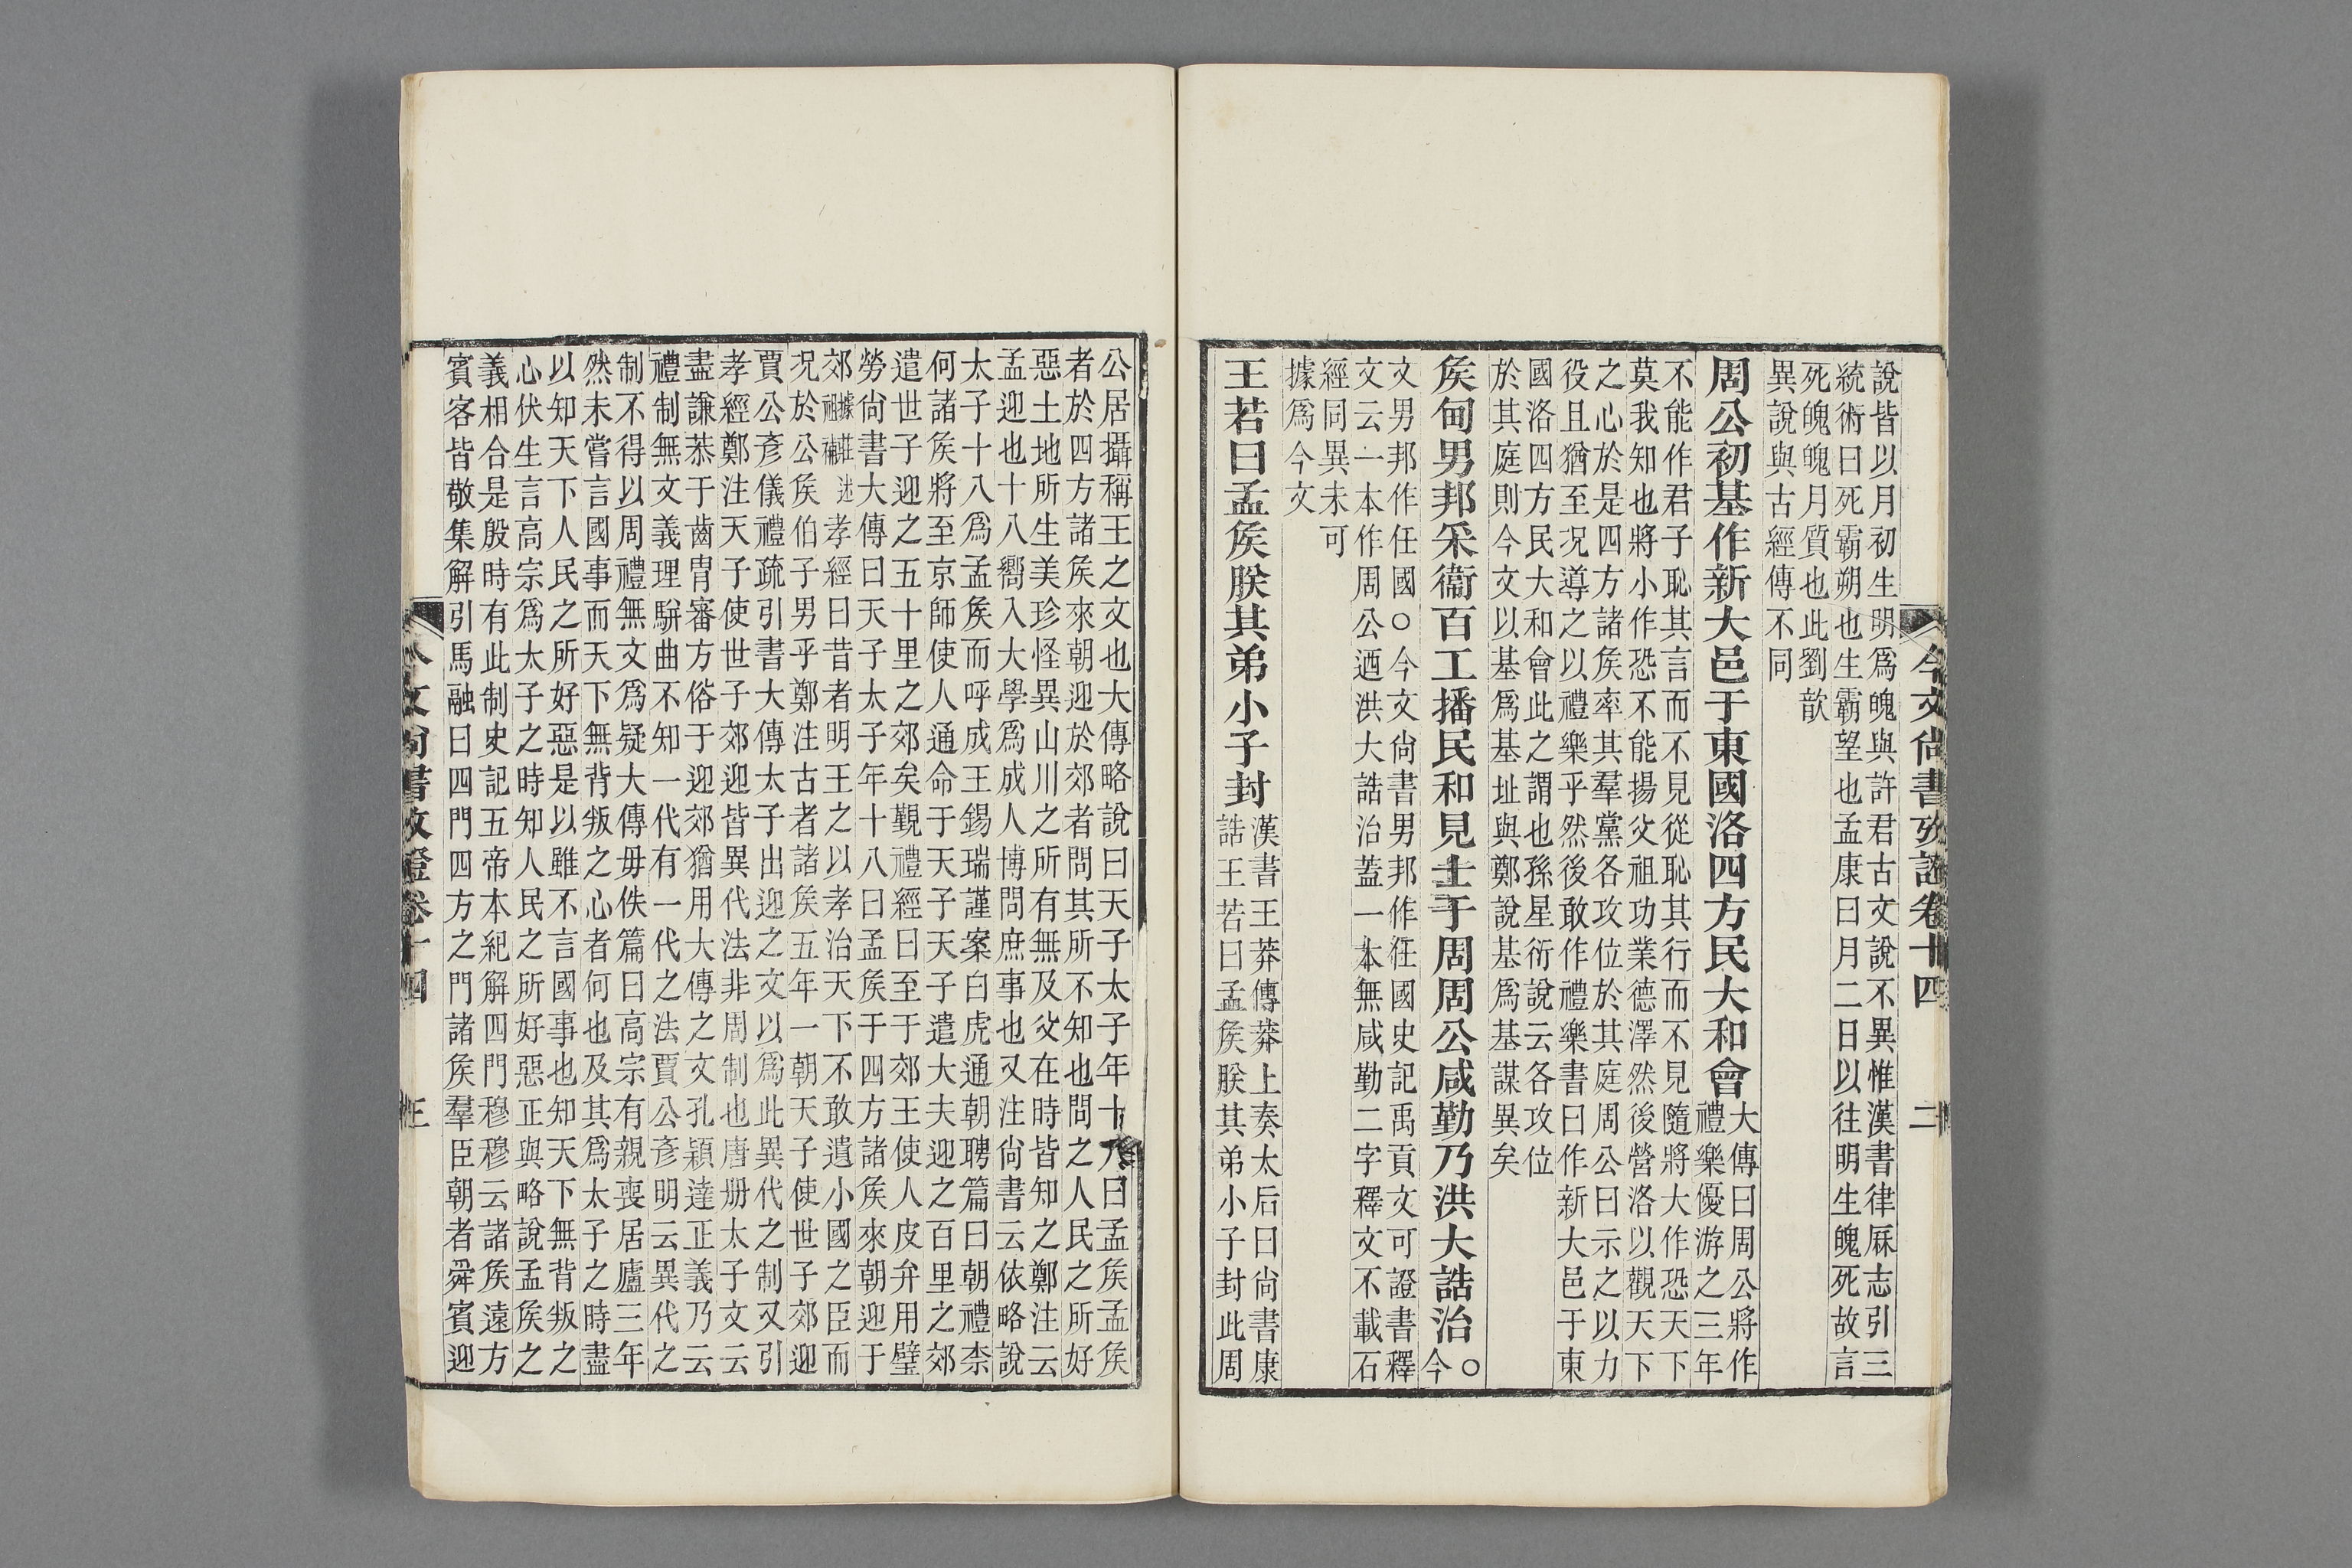 今文尚書攷證卷十四 二
說皆以月初生明爲魄與許君古文說不異惟漢書律厤志引三
統術曰死霸朔也生霸望也孟康曰月二日以往明生魄死故言
死魄魄月質也此劉歆
異說與古經傳不同
周公初基作新大邑于東國洛四方民大和會
大傳曰周公將作
禮樂優游之三年
不能作君子恥其言而不見從恥其行而不見隨將大作恐天下
莫我知也將小作恐不能揚父祖功業德澤然後營洛以觀天下
之心於是四方諸矦率其羣黨各攻位於其庭周公曰示之以力
役且猶至況導之以禮樂乎然後敢作禮樂書曰作新大邑于東
國洛四方民大和會此之謂也孫星衍說云各攻位
於其庭則今文以基爲基址與鄭說基爲基謀異矣
矦甸男邦采衞百工播民和見士于周周公咸勤乃洪大誥治
○
今
文男邦作任國○今文尚書男邦作任國史記禹貢文可證書釋
文云一本作周公迺洪大誥治蓋一本無咸勤二字釋文不載石
經同異未可
據爲今文
王若曰孟矦朕其弟小子封
漢書王莽傳莽上奏太后曰尚書康
誥王若曰孟矦朕其弟小子封此周
公居攝稱王之文也大傳略說曰天子太子年十八曰孟矦孟矦
者於四方諸矦來朝迎於郊者問其所不知也問之人民之所好
惡土地所生美珍怪異山川之所有無及父在時皆知之鄭注云
孟迎也十八嚮入大學爲成人博問庶事也又注尚書云依略說
太子十八爲孟矦而呼成王錫瑞謹案白虎通朝聘篇曰朝禮柰
何諸矦將至京師使人通命于天子天子遣大夫迎之百里之郊
遣世子迎之五十里之郊矣覲禮經曰至于郊王使人皮弁用璧
勞尚書大傳曰天子太子年十八曰孟矦于四方諸矦來朝迎于
郊據莊述祖補孝經曰昔者明王之以孝治天下不敢遺小國之臣而
況於公矦伯子男乎鄭注古者諸矦五年一朝天子使世子郊迎
賈公彥儀禮疏引書大傳太子出迎之文以爲此異代之制又引
孝經鄭注天子使世子郊迎皆異代法非周制也唐册太子文云
盡謙恭于齒冑審方俗于迎郊猶用大傳之文孔穎達正義乃云
禮制無文義理駢曲不知一代有一代之法賈公彥明云異代之
制不得以周禮無文爲疑大傳毋佚篇曰高宗有親喪居廬三年
然未嘗言國事而天下無背叛之心者何也及其爲太子之時盡
以知天下人民之所好惡是以雖不言國事也知天下無背叛之
心伏生言高宗爲太子之時知人民之所好惡正與略說孟矦之
義相合是殷時有此制史記五帝本紀解四門穆穆云諸矦遠方
賓客皆敬集解引馬融曰四門四方之門諸矦羣臣朝者舜賓迎
今文尚書攷證卷十四